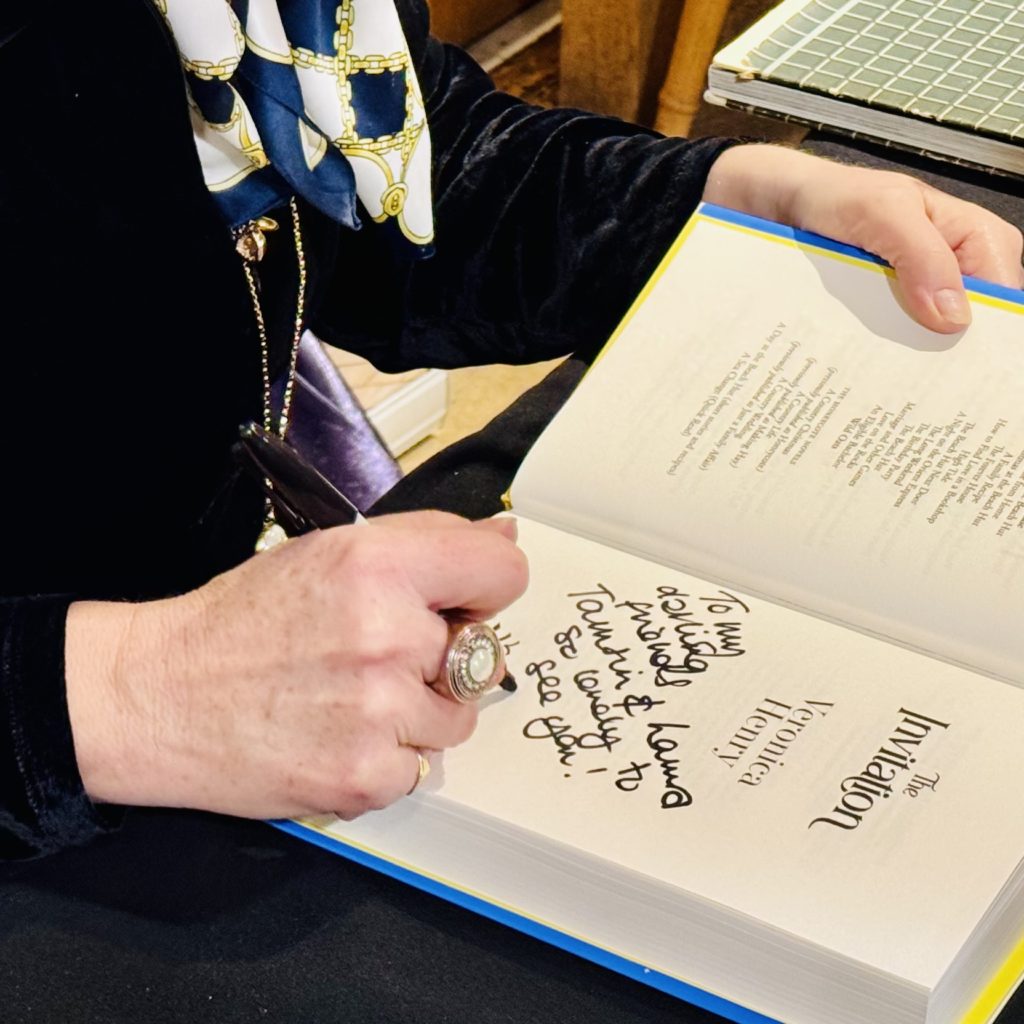 A Family Recipe
The Forever House
How to Find Love in a Bookshop
High Tide
The Beach Hut Next Door
A Night on the Orient Express
The Long Weekend
The Birthday Party
The Beach Hut
Marriage and Other Games
Love on the Rocks
An Eligible Bachelor
Wild Oats
THE HONEYCOTE NOVELS
A Country Christmas
(previously published as Honeycote)
A Country Life
(previously published as Making Hay)
A Country Wedding
(previously published as Just a Family Affair)
A Sea Change (Quick Read)
A Day at the Beach Hut (short stories and recipes)
The
Invitation
Veronica
Henry
To my
darling
friends
Tamsin & Laura
so lovely to
see you!